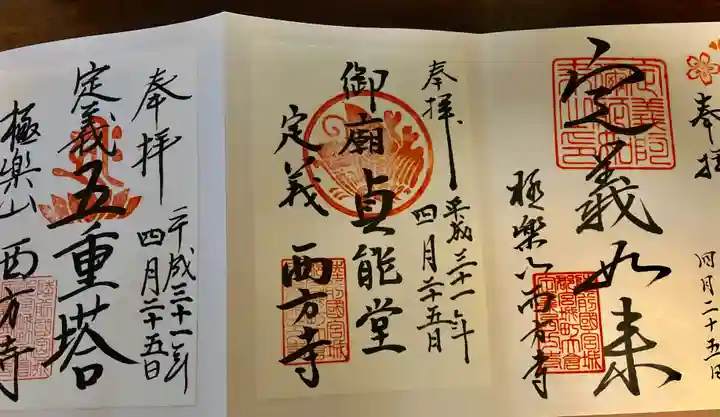 奉拝
四月二十五日
定義如来
極楽山西方寺
奉拝
平成三十一年
四月二十五日
御廟貞能堂
定義
西方寺
奉拝
平成三十一年
四月二十五日
定義五重塔
極楽山西方寺